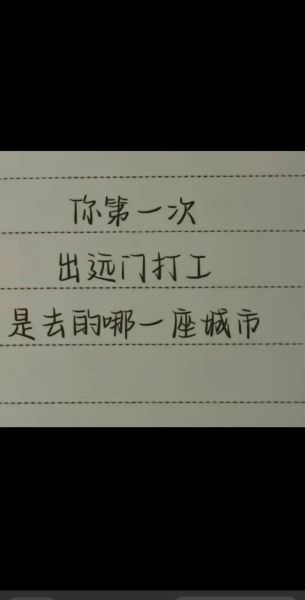 你第一次
出远门打工
是去的哪一座城市